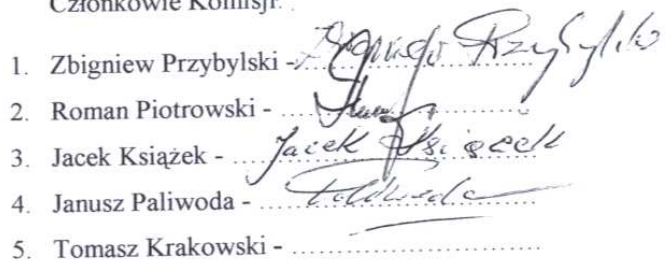 Członkowie Komisji:
1. Zbigniew Przybylski - Zbigniew Przybylski
2. Roman Piotrowski - ..........
3. Jacek Książek - Jacek Książek
4. Janusz Paliwoda - Paliwoda
5. Tomasz Krakowski - ..........